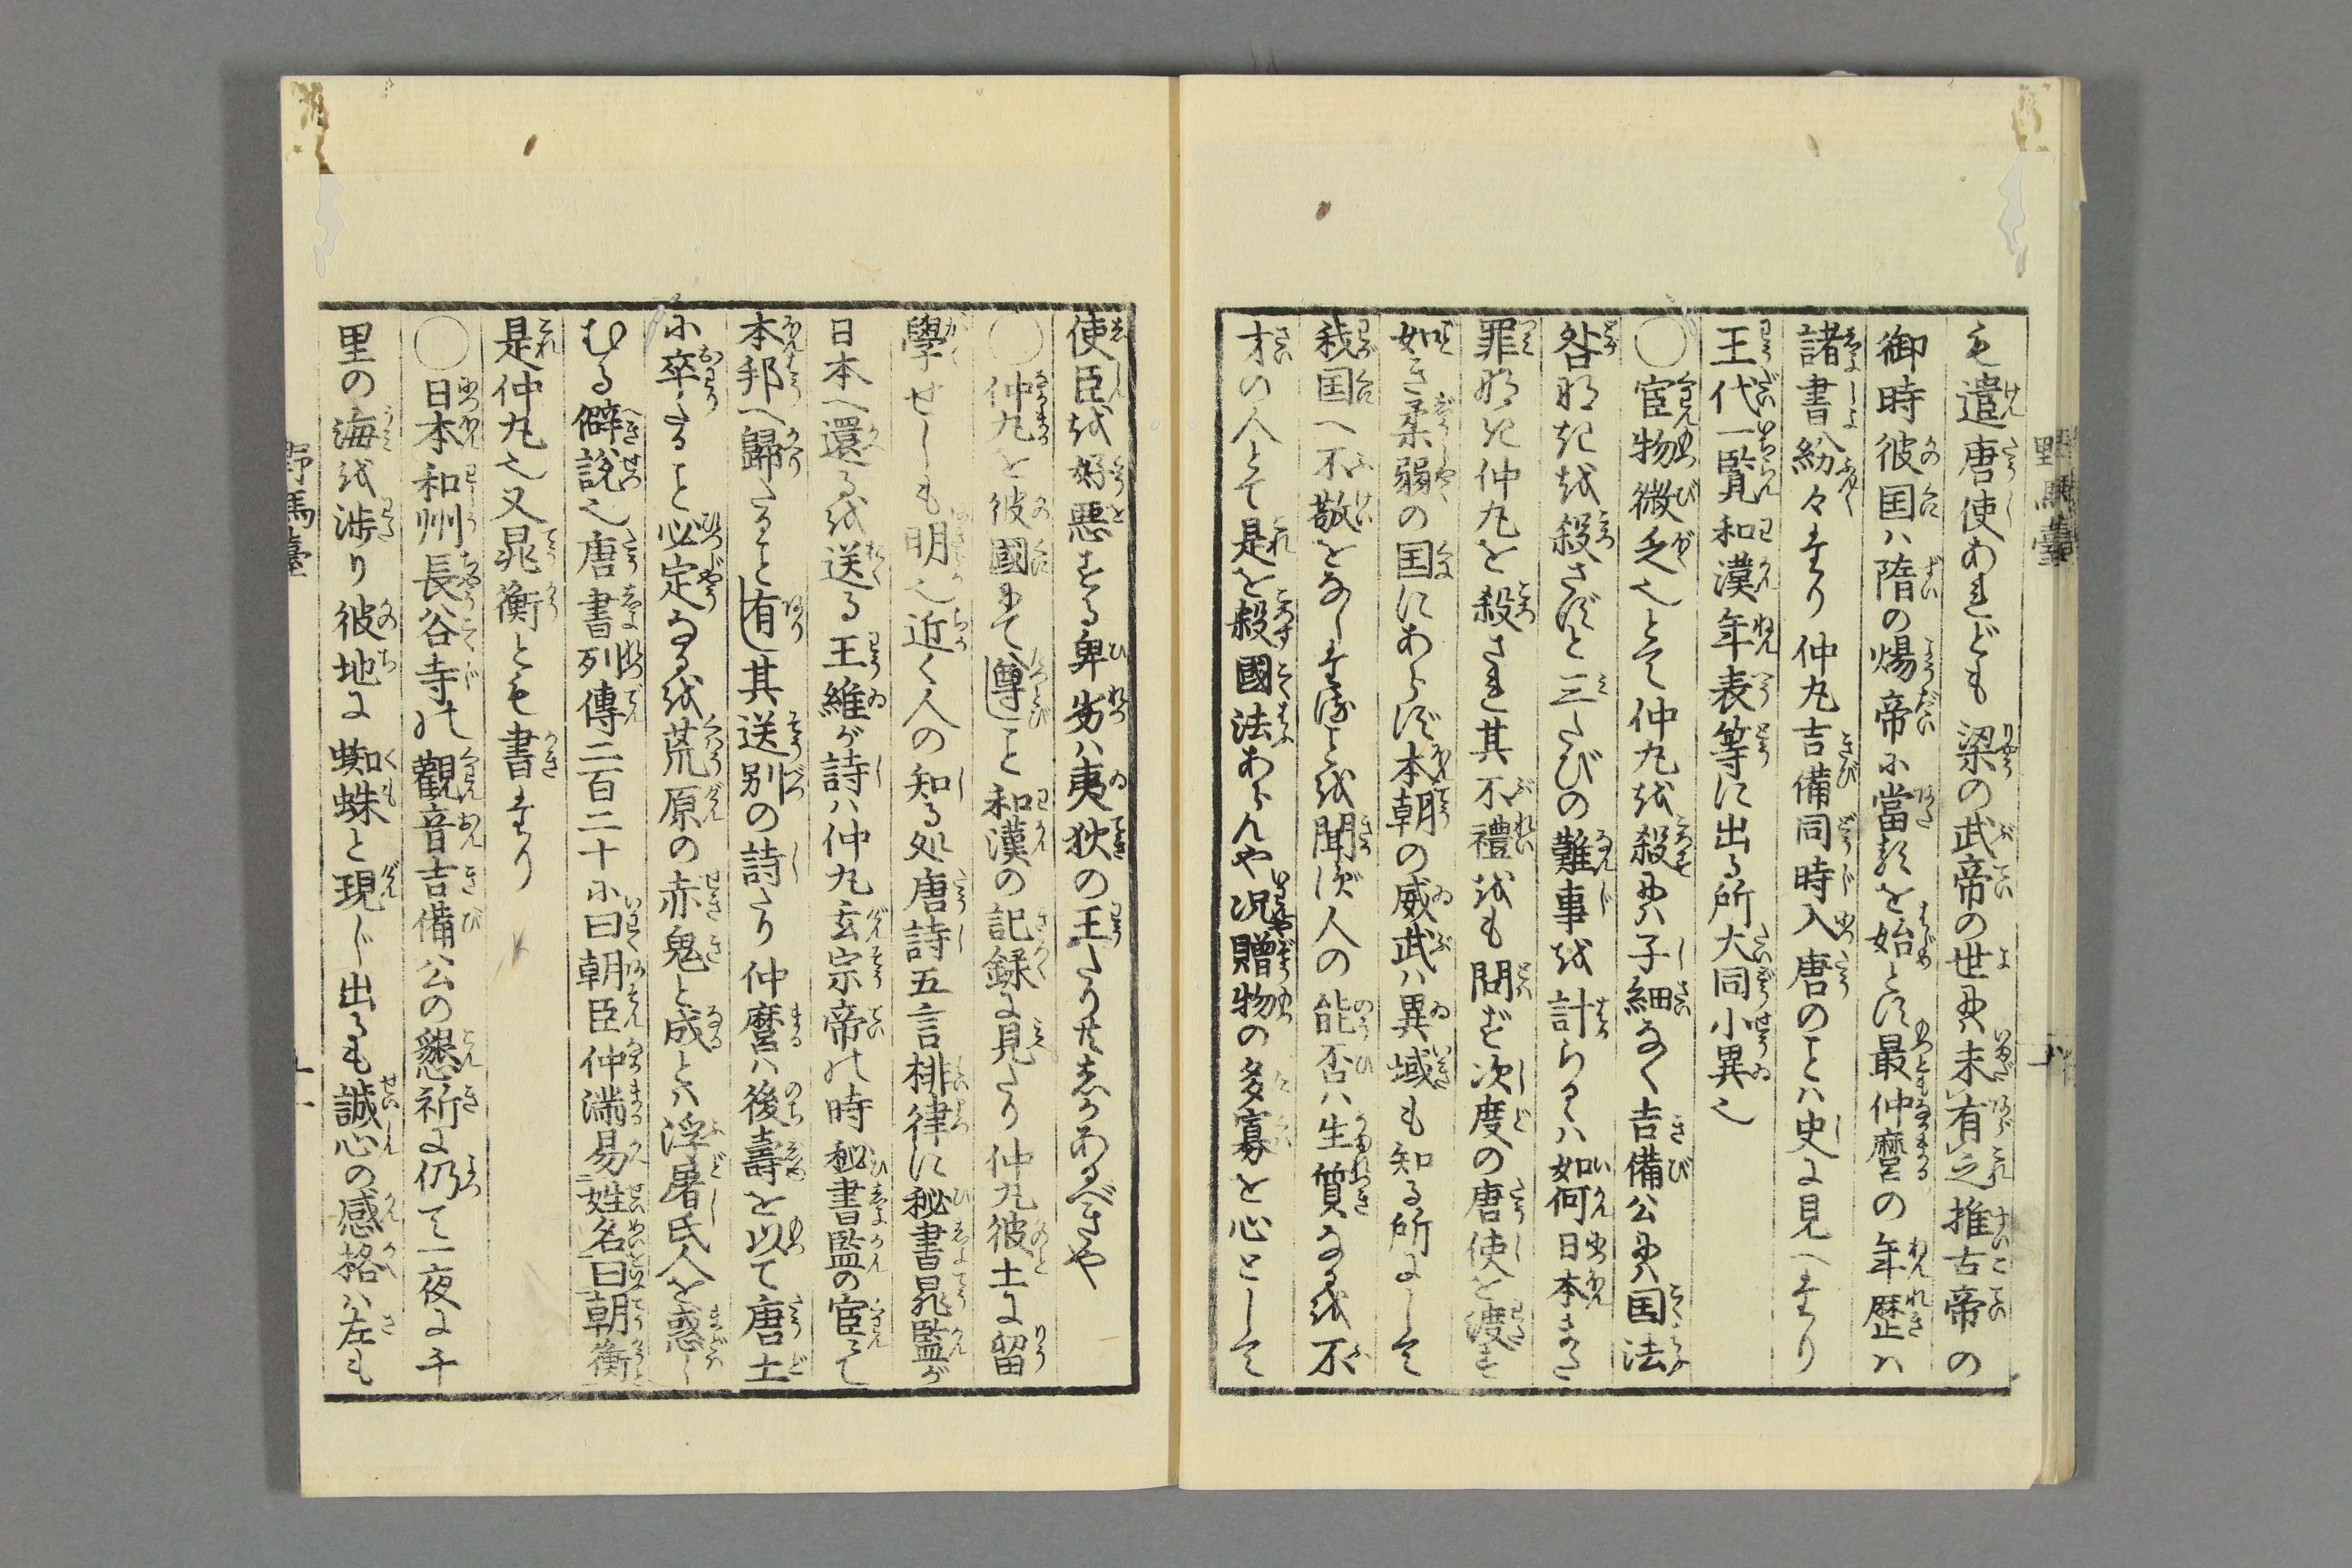 も遣唐使あれども梁の武帝の世には未有之推古帝の
御時彼国ハ隋の煬帝に當るを始とす最仲麿の年歴ハ
諸書紛々たり仲丸吉備同時入唐のことハ史に見へたり
王代一覧和漢年表等に出る所大同小異也
○官物微乏也とて仲丸を殺せバ子細なく吉備公にハ国法
咎なきを殺さずと三たびの難事を計らるハ如何日本また
罪なき仲丸を殺され其不禮をも問ず次度の唐使を渡す
如き柔弱の国にあらず本朝の威武ハ異域も知る所にして
我国へ不敬をなしたることを聞ず人の能否ハ生質なるを不
才の人とて是を殺國法あらんや况贈物の多寡を心として
使臣を好悪する卑劣ハ夷狄の王たり共あるべきや
○仲丸を彼國にて尊こと和漢の記録に見たり仲丸彼土に留
學せしも明也近く人の知る処唐詩五言排律に秘書晁監が
日本へ還るを送る王維が詩ハ仲丸玄宗帝の時秘書監の官にて
本邦へ歸たること有し其送別の詩たり仲麿ハ後壽を以て唐土
に卒たること必定なるを荒原の赤鬼と成とハ浮屠氏人を惑し
むる僻說也唐書列傳二百二十に曰朝臣仲満易姓名曰朝衡
是仲丸也又晁衡とも書たり
○日本和州長谷寺の觀音吉備公の懇祈に仍て一夜に千
里の海を渉り彼地に蜘蛛と現じ出るも誠心の感格ハ左も
野馬臺